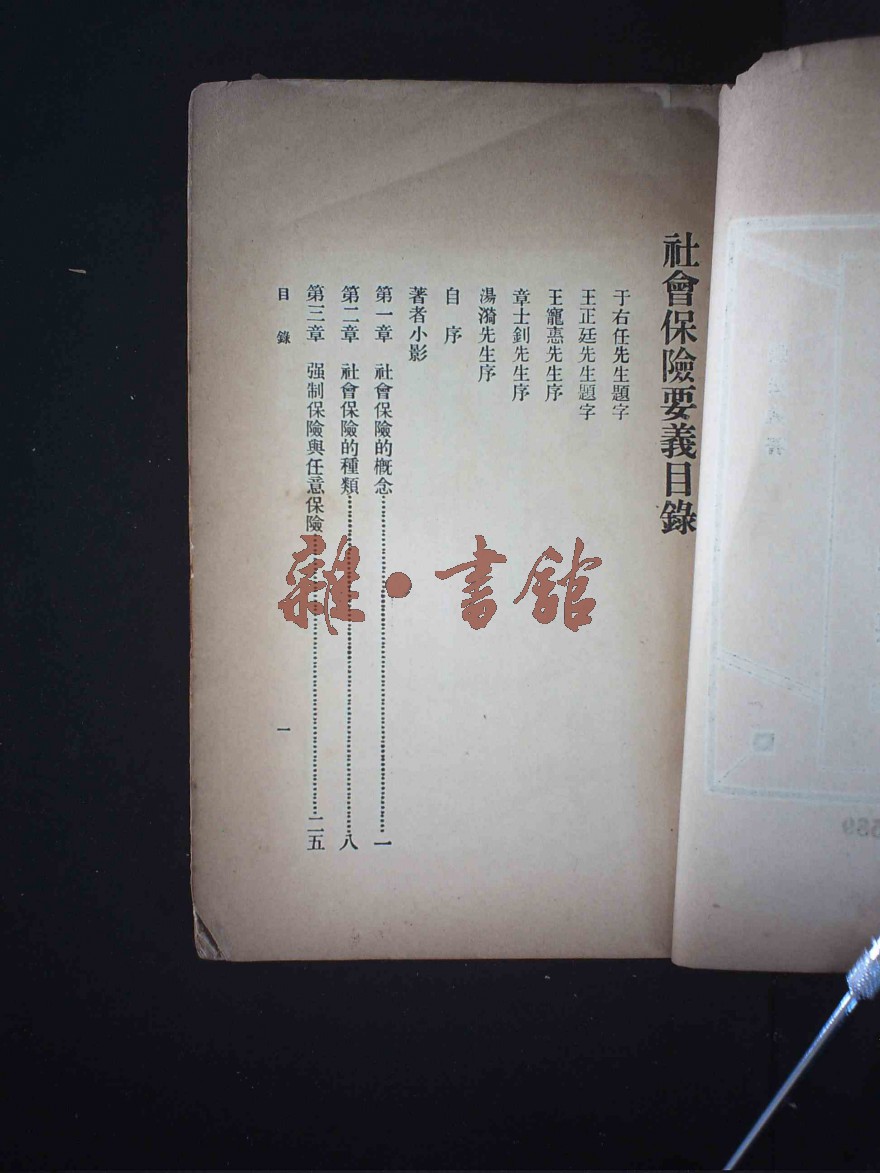 社會保險要義目錄
于右任先生題字
王正廷先生題字
王寵惠先生序
章士釗先生序
湯漪先生序
自序
著者小影
第一章 社會保險的概念……一
第二章 社會保險的種類……八
第三章 强制保險與任意保險……二五
目錄 一
雜·書館